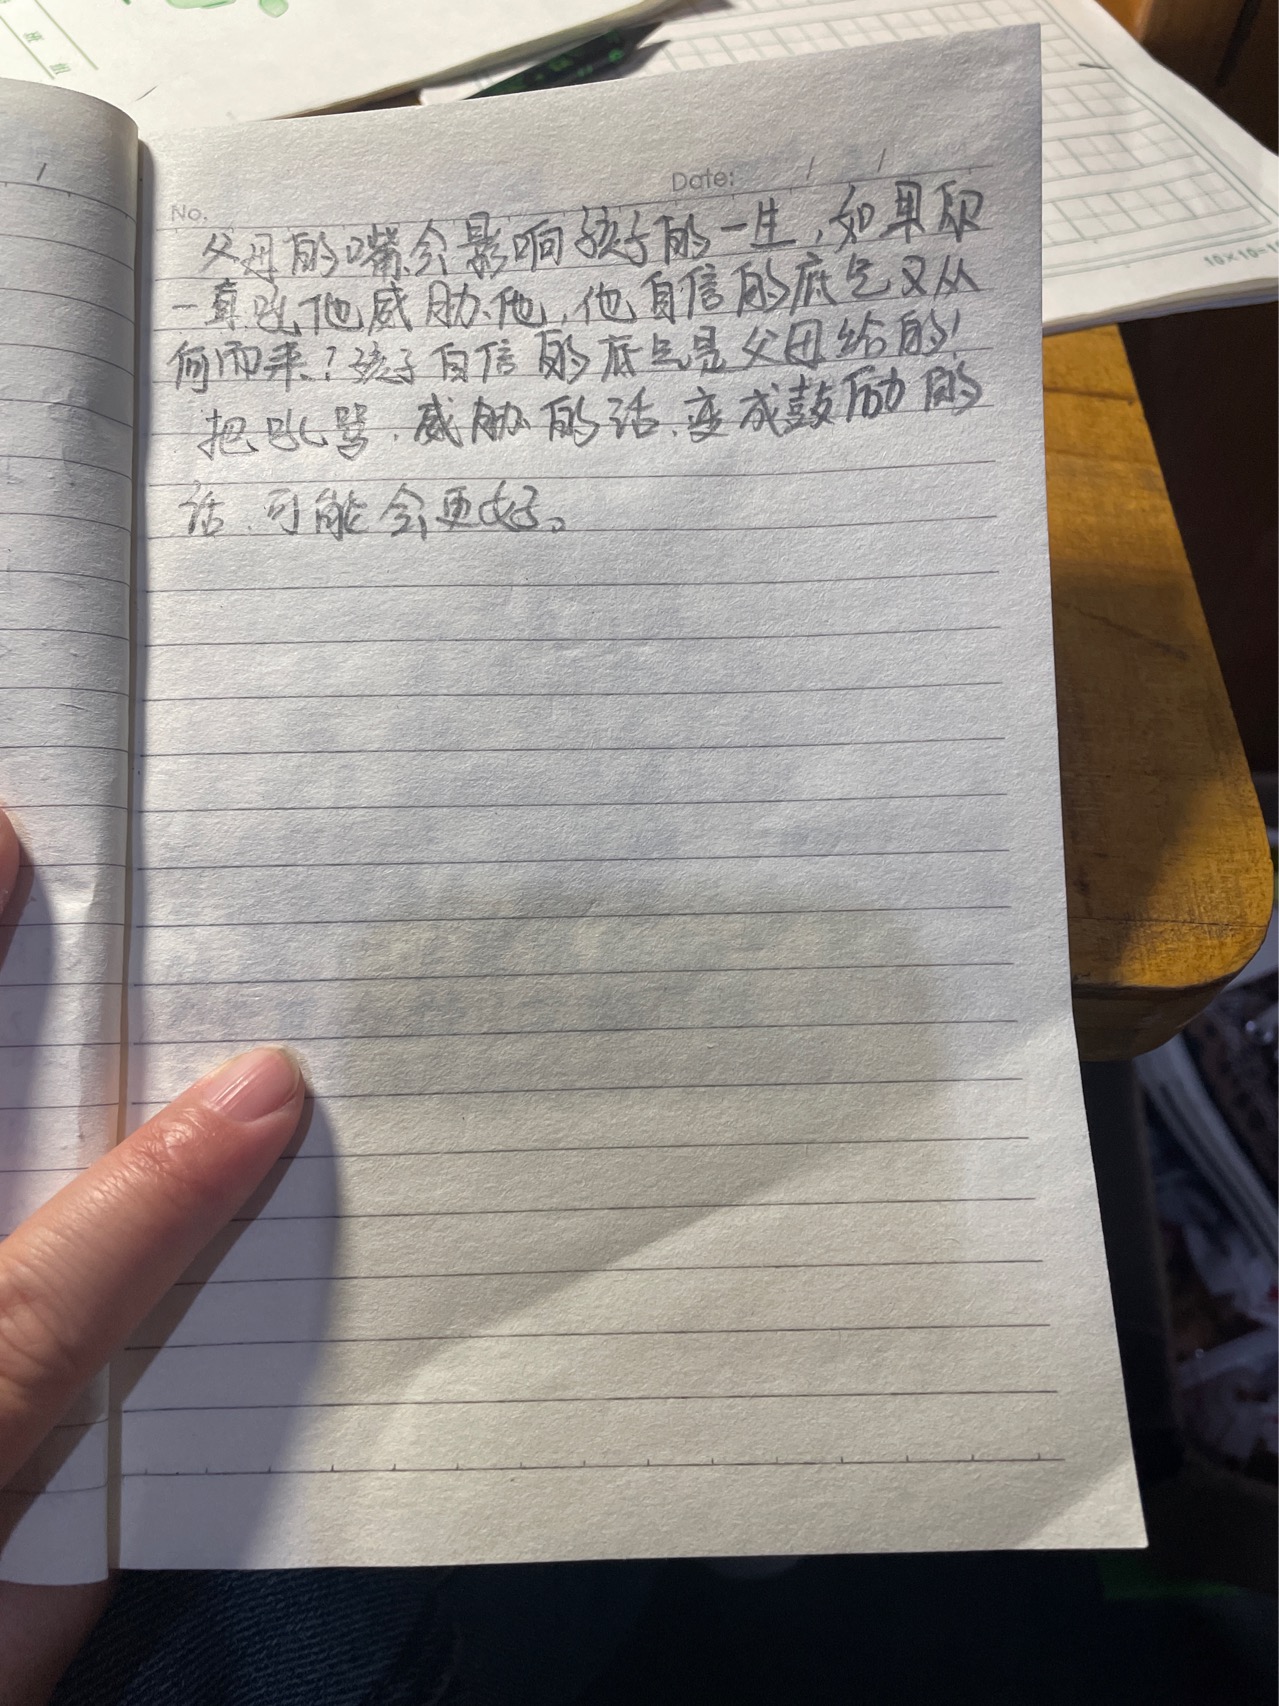 Date: / /
No.
父母的嘴会影响孩子的一生,如果
一直吼他威胁他,他自信的底气又从
何而来?孩子自信的底气是父母给的!
把吼骂、威胁的话、变成鼓励的
话、可能会更好。
10×10=1